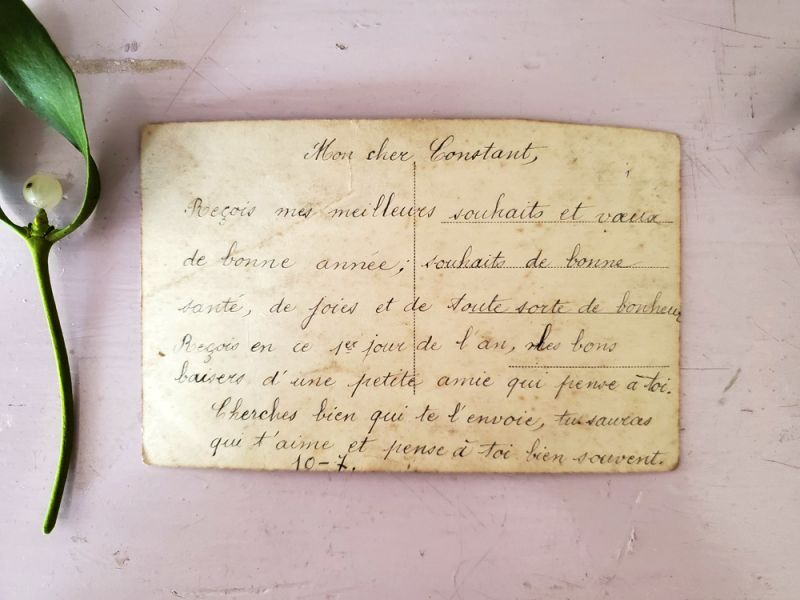 Mon cher Constant,
Reçois mes meilleurs souhaits et vœux
de bonne année; souhaits de bonne
santé, de joies et de toute sorte de bonheur
Reçois en ce 1er jour de l'an, les bons
baisers d'une petite amie qui pense à toi.
Cherches bien qui te l'envoie, tu sauras
qui t'aime et pense à toi bien souvent.
10-7.